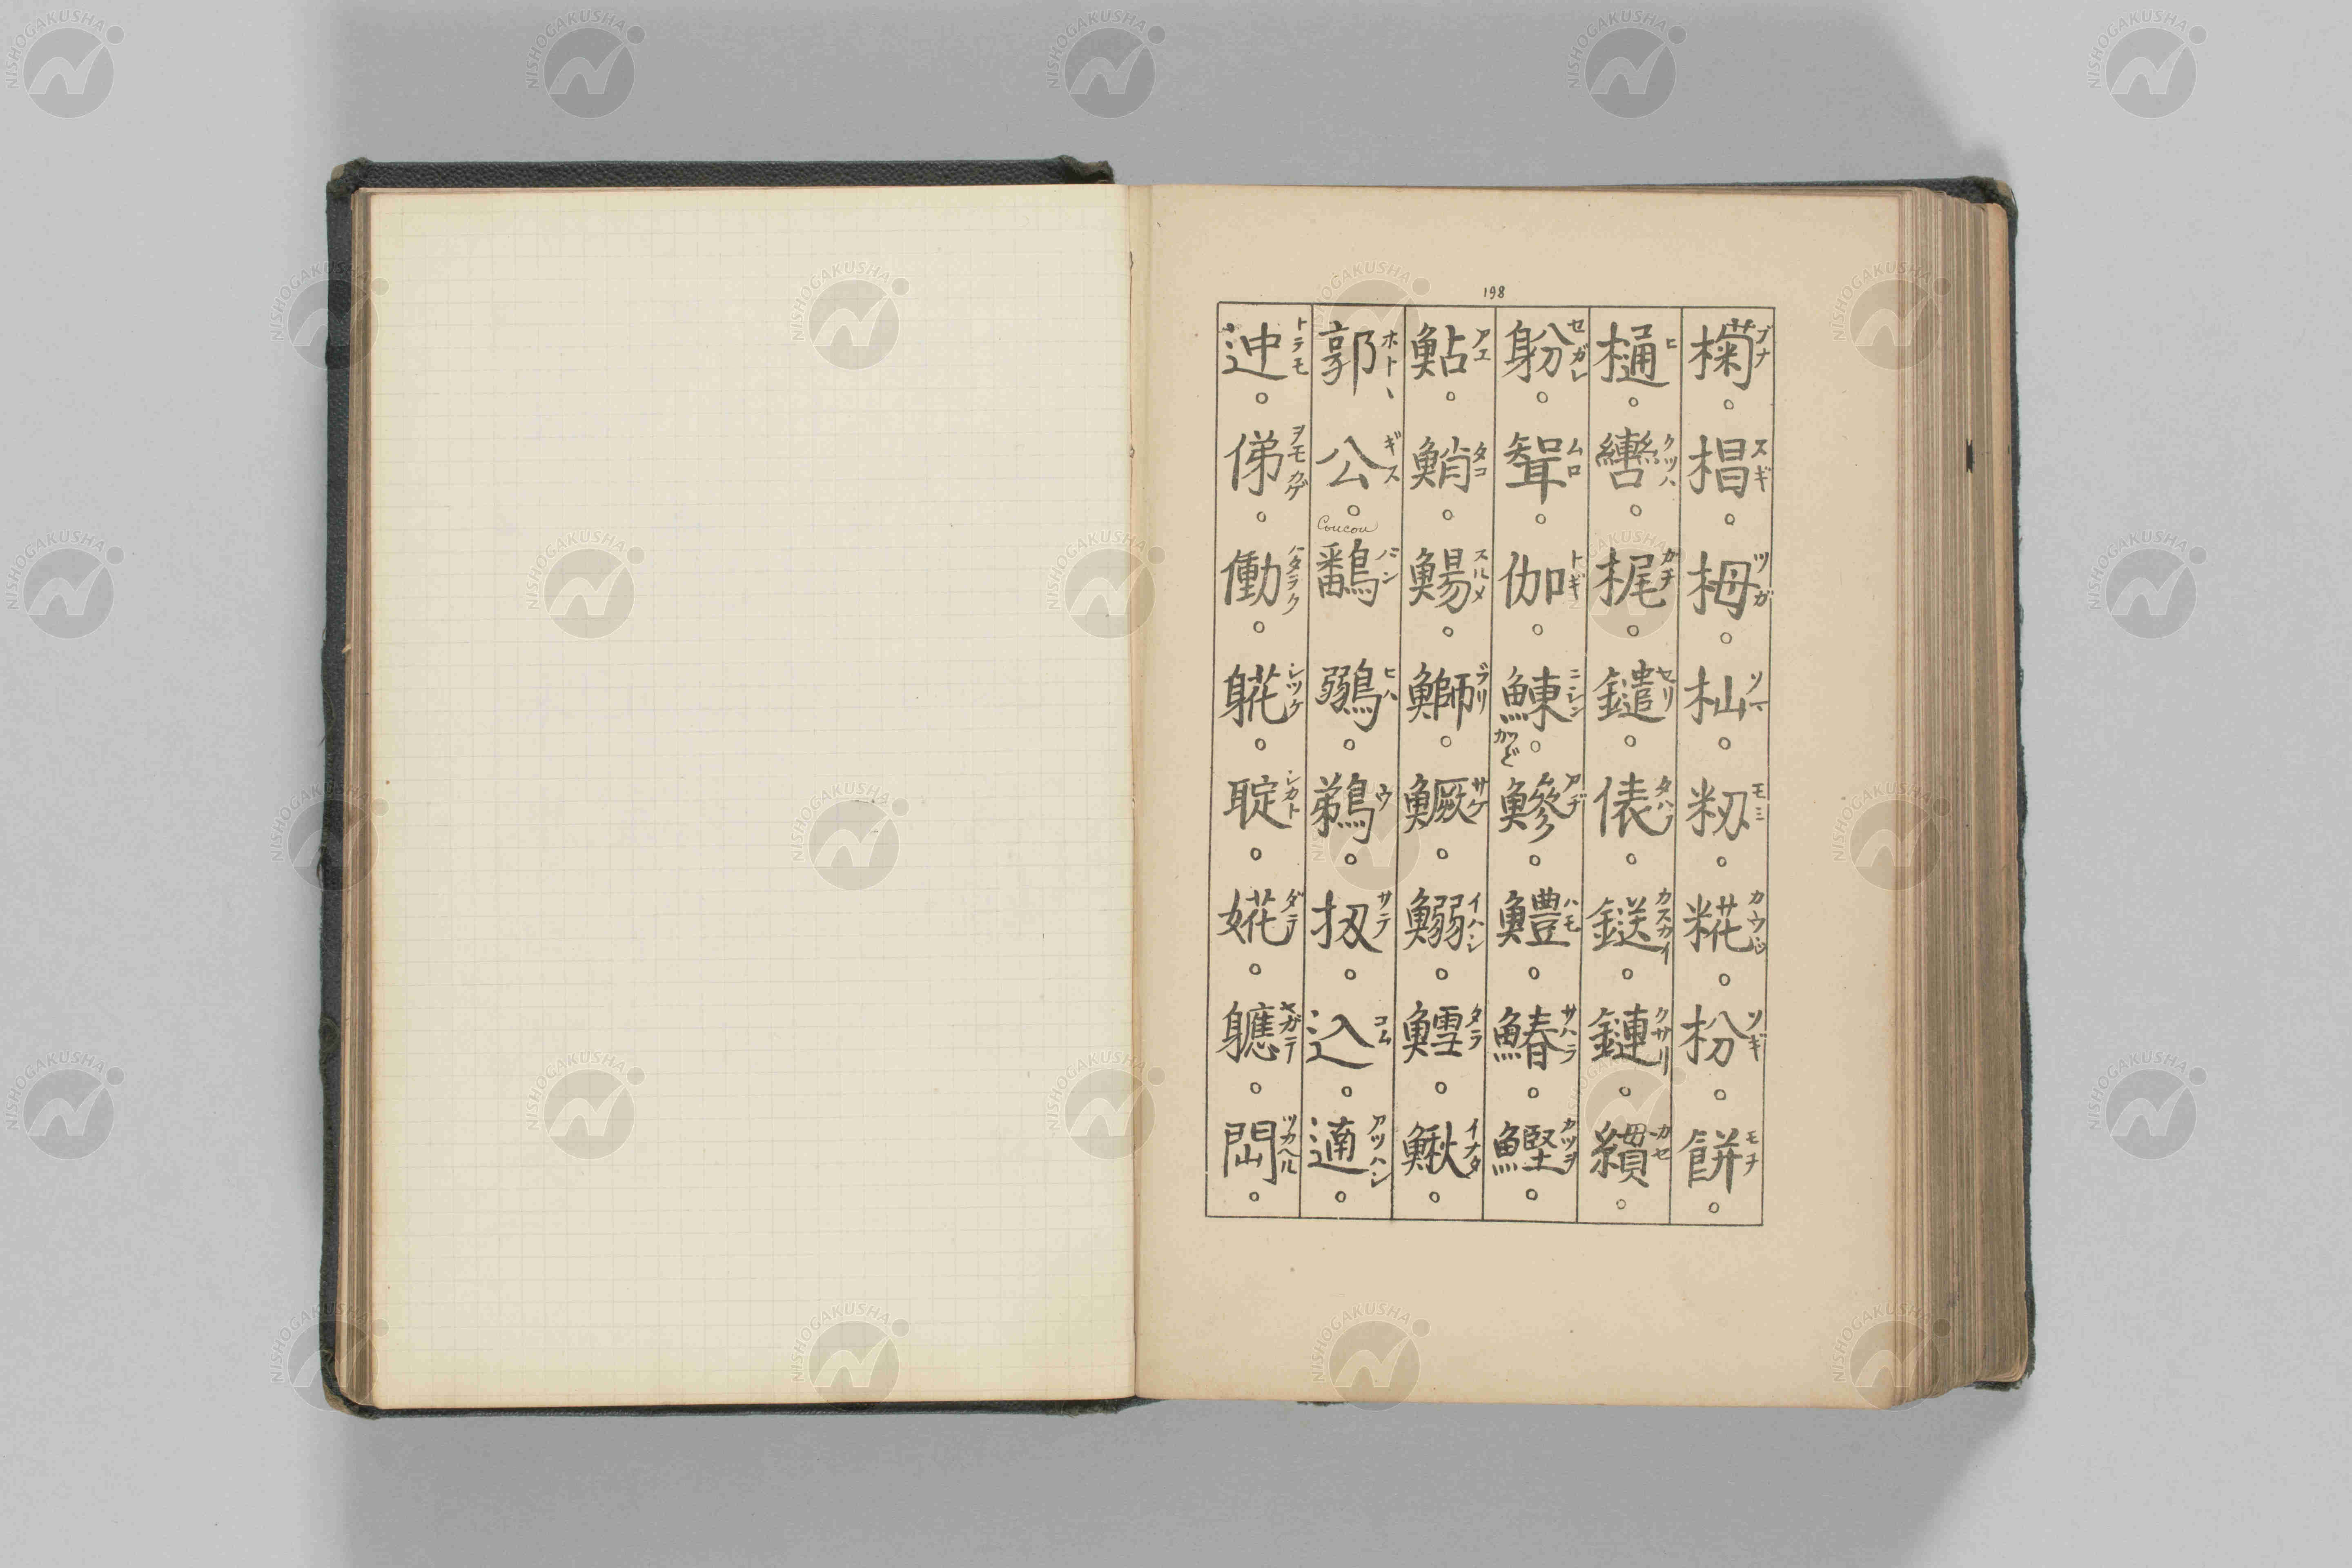 198
椈ブナ。椙スギ。栂ツガ。杣ソマ。籾モミ。糀カウジ。枌ソギ。餅モチ。
樋ヒ。轡クツハ。梶カヂ。鑓ヤリ。俵タハラ。鎹カスカイ。鏈クサリ。纃カセ。
躮セガレ。聟ムコ。伽トギ。鰊ニシンかど。鰺アヂ。鱧ハモ。鰆サハラ。鰹カツヲ。
鮎アユ。鮹タコ。鰑スルメ。鰤ブリ。鱖サケ。鰯イハシ。鱈タラ。鰍イナダ。
郭ホトヽ公ギス。Coucou 鷭バン鶸ヒハ。鵜ウ。扨サテ。込コム。遖アツハレ。
迚トテモ。俤ヲモカゲ。働ハタラク。躾シツケ。聢シカト。婲ダテ。軈ヤガテ。閊ツカヘル。